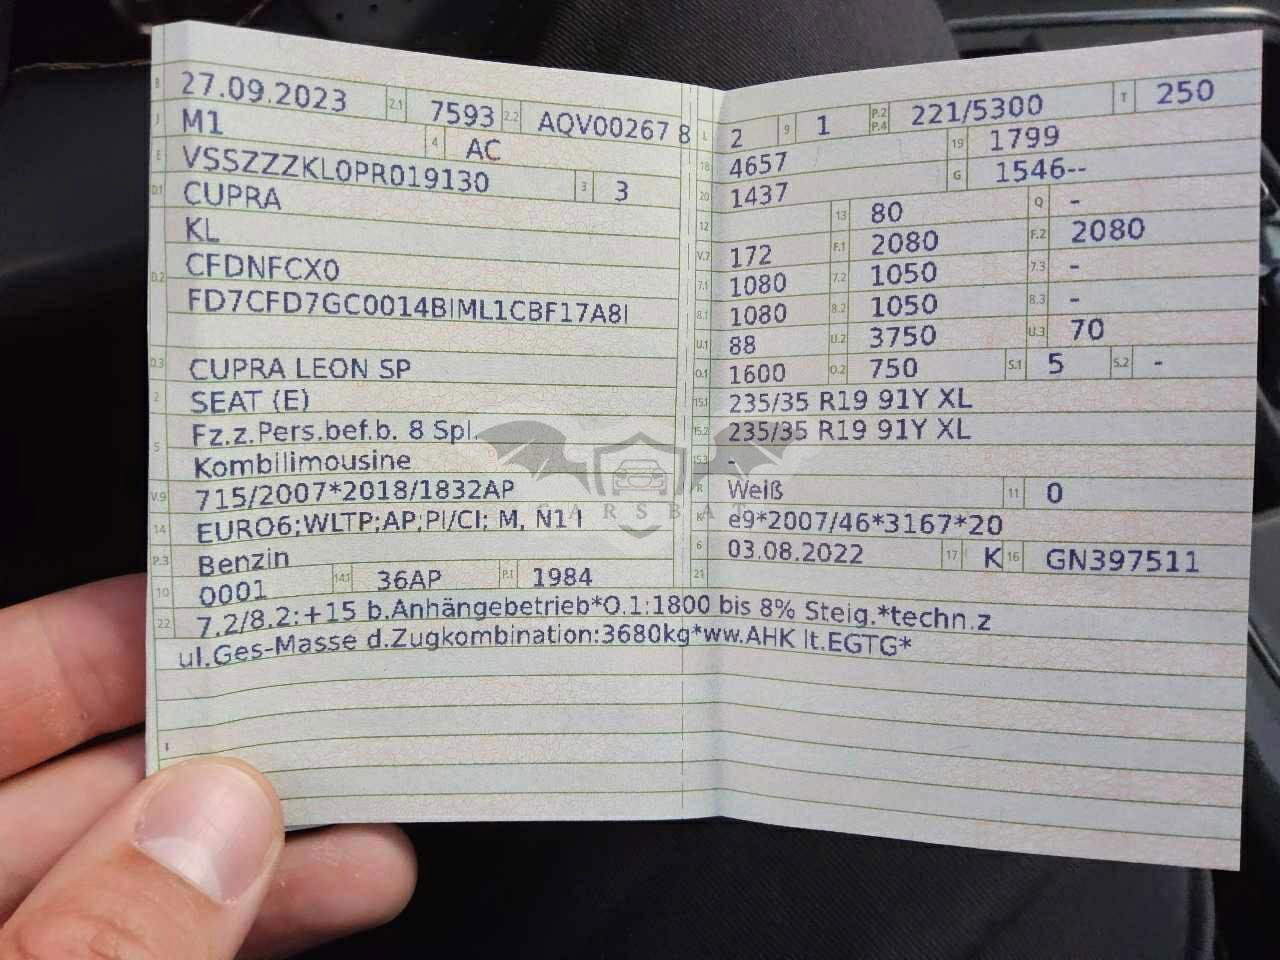 B 27.09.2023 2.1 7593 2.2 AQV00267 8
J M1 4 AC
E VSSZZZKL0PR019130 3 3
D.1 CUPRA
KL
D.2 CFDNFCX0
FD7CFD7GC0014BIML1CBF17A8I
D.3 CUPRA LEON SP
2 SEAT (E)
5 Fz.z.Pers.bef.b. 8 Spl.
Kombilimousine
V.9 715/2007*2018/1832AP
14 EURO6;WLTP;AP;PI/CI; M, N1 I
P.3 Benzin
10 0001 14.1 36AP P.1 1984
L 2 9 1 P.2 P.4 221/5300 T 250
18 4657 19 1799
20 1437 G 1546--
12 13 80 Q -
V.7 172 F.1 2080 F.2 2080
7.1 1080 7.2 1050 7.3 -
8.1 1080 8.2 1050 8.3 -
U.1 88 U.2 3750 U.3 70
O.1 1600 O.2 750 S.1 5 S.2 -
15.1 235/35 R19 91Y XL
15.2 235/35 R19 91Y XL
15.3 -
R Weiß 11 0
K e9*2007/46*3167*20
6 03.08.2022 17 K 16 GN397511
21
22 7.2/8.2:+15 b.Anhängebetrieb*O.1:1800 bis 8% Steig.*techn.z
ul.Ges-Masse d.Zugkombination:3680kg*ww.AHK lt.EGTG*
CARSBAT